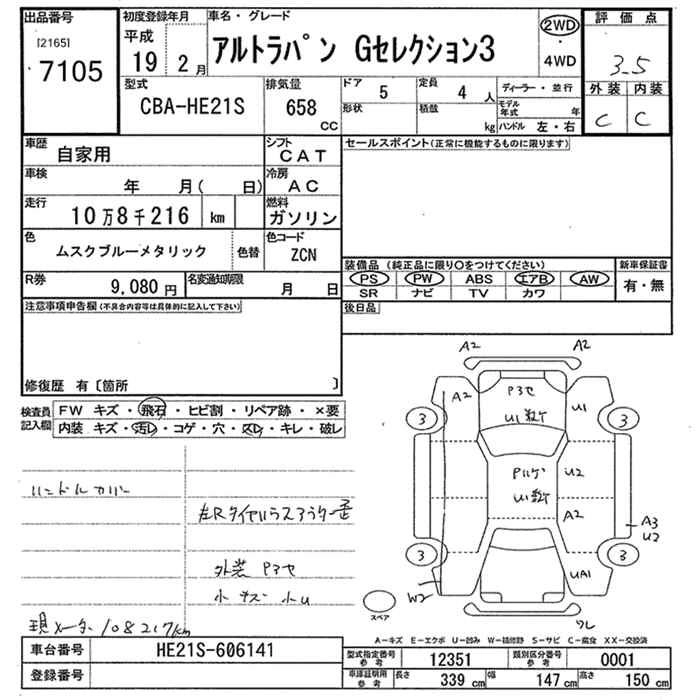 出品番号
[2165]
7105
初度登録年月
平成
19 2月
車名・グレード
アルトラパン Gセレクション3
2WD
・
4WD
評価点
3.5
外装 内装
C C
型式
CBA-HE21S
排気量
658
cc
ドア
5
形状
定員
4 人
積載
kg
ディーラー・並行
モデル年式 年
ハンドル 左・右
車歴
自家用
シフト
CAT
車検
年 月( 日)
冷房
AC
走行
10万8千216 km
燃料
ガソリン
色
ムスクブルーメタリック
色替
色コード
ZCN
R券
9,080円
名変通知期限
月 日
セールスポイント(正常に機能するものに限ります)
装備品 (純正品に限り○をつけてください)
PS PW ABS エアB AW
SR ナビ TV カワ
新車保証書
有・無
後日品
注意事項申告欄(不具合内容等は具体的に記入して下さい)
修復歴 有〔箇所 〕
検査員記入欄
FW キズ・飛石・ヒビ割・リペア跡・×要
内装 キズ・汚レ・コゲ・穴・スレ・キレ・破レ
ハンドルカバー
外装 Pヨセ
小キズ 小U
現メーター108217km
A2 A2
A2 Pヨセ U1
3 3
A2
U2
A3
U2
3 3
UA1
W2
スペア
ワレ
A-キズ E-エクボ U-凹み W-補修跡 S-サビ C-腐食 XX-交換済
車台番号
HE21S-606141
登録番号
型式指定番号
参考
12351
類別区分番号
参考
0001
車庫証明用
参考
長さ 339 cm 幅 147 cm 高さ 150 cm